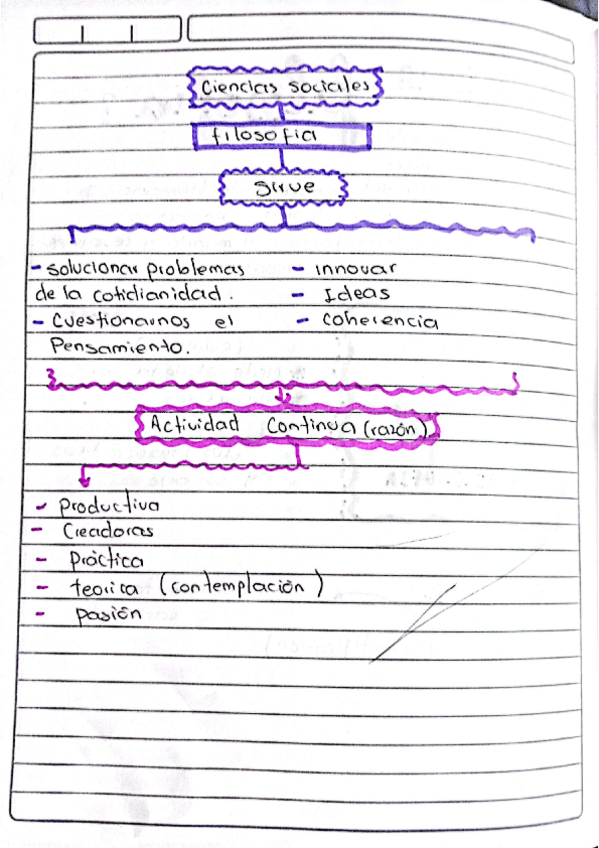 Ciencias sociales
filosofia
Sirve
- solucionar problemas
de la cotidianidad.
- Cuestionarnos el
Pensamiento.
- innovar
- Ideas
- coherencia
Actividad Continua (razón)
- Productiva
- Creadoras
- Práctica
- teorica (contemplación)
- pasión